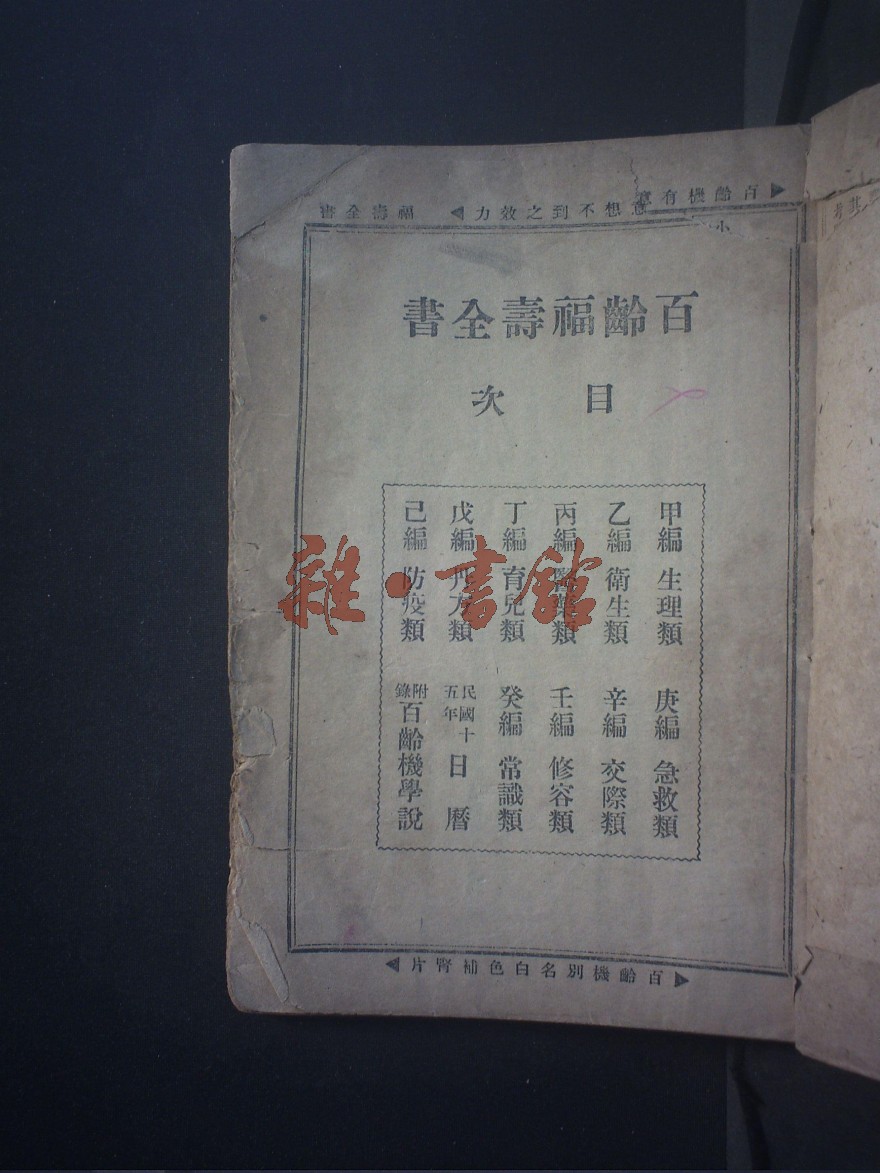 百齡機有意想不到之效力 福壽全書
百齡福壽全書
目次
甲編 生理類
乙編 衛生類
丙編 醫藥類
丁編 育兒類
戊編 丹方類
己編 防疫類
庚編 急救類
辛編 交際類
壬編 修容類
癸編 常識類
民國十五年 日曆
附錄 百齡機學說
百齡機別名白色補腎片
雜·書館